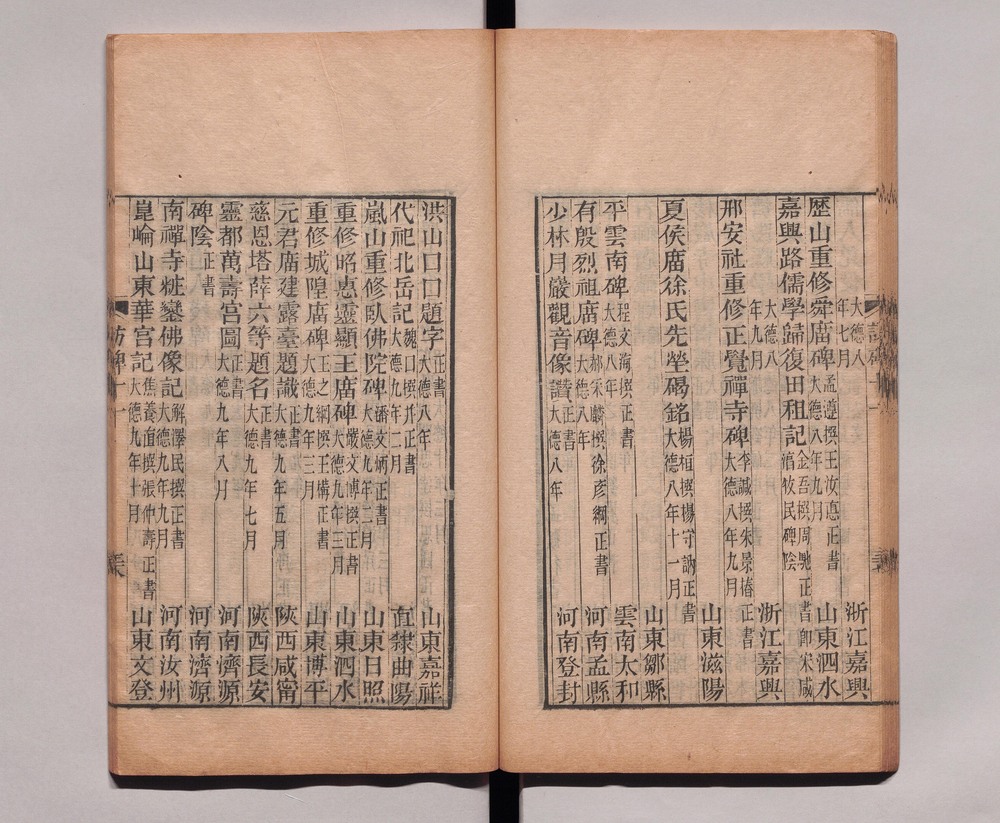 大德八年七月 浙江嘉興
歷山重修舜廟碑 孟遵撰王汝愿正書大德八年九月 山東泗水
嘉興路儒學歸復田租記 金吾撰周馳正書卽宋咸淳牧民碑陰大德八年九月 浙江嘉興
邢安社重修正覺禪寺碑 李誠撰朱景椿正書大德八年九月 山東滋陽
夏侯廟徐氏先塋碣銘 楊桓撰楊守訥正書大德八年十一月 山東鄒縣
平雲南碑 程文海撰正書大德八年 雲南太和
有殷烈祖廟碑 郝采麟撰徐彦綱正書大德八年 河南孟縣
少林月巖觀音像讚 正書大德八年 河南登封
洪山口口題字 正書大德八年 山東嘉祥
代祀北岳記 魏口撰并正書大德九年二月 直隸曲陽
嵐山重修臥佛院碑 潘文炳正書大德九年二月 山東日照
重修昭惠靈顯王廟碑 嚴文博撰正書大德九年三月 山東泗水
重修城隍廟碑 王之綱撰王構正書大德九年三月 山東博平
元君廟建露臺題識 正書大德九年五月 陝西咸甯
慈恩塔薛六等題名 正書大德九年七月 陝西長安
靈都萬壽宮圖 正書大德九年八月 河南濟源
碑陰 正書 河南濟源
南禪寺粧鑾佛像記 解澤民撰正書大德九年九月 河南汝州
崑崳山東華宮記 焦養直撰張仲壽正書大德九年十月 山東文登
訪碑十一